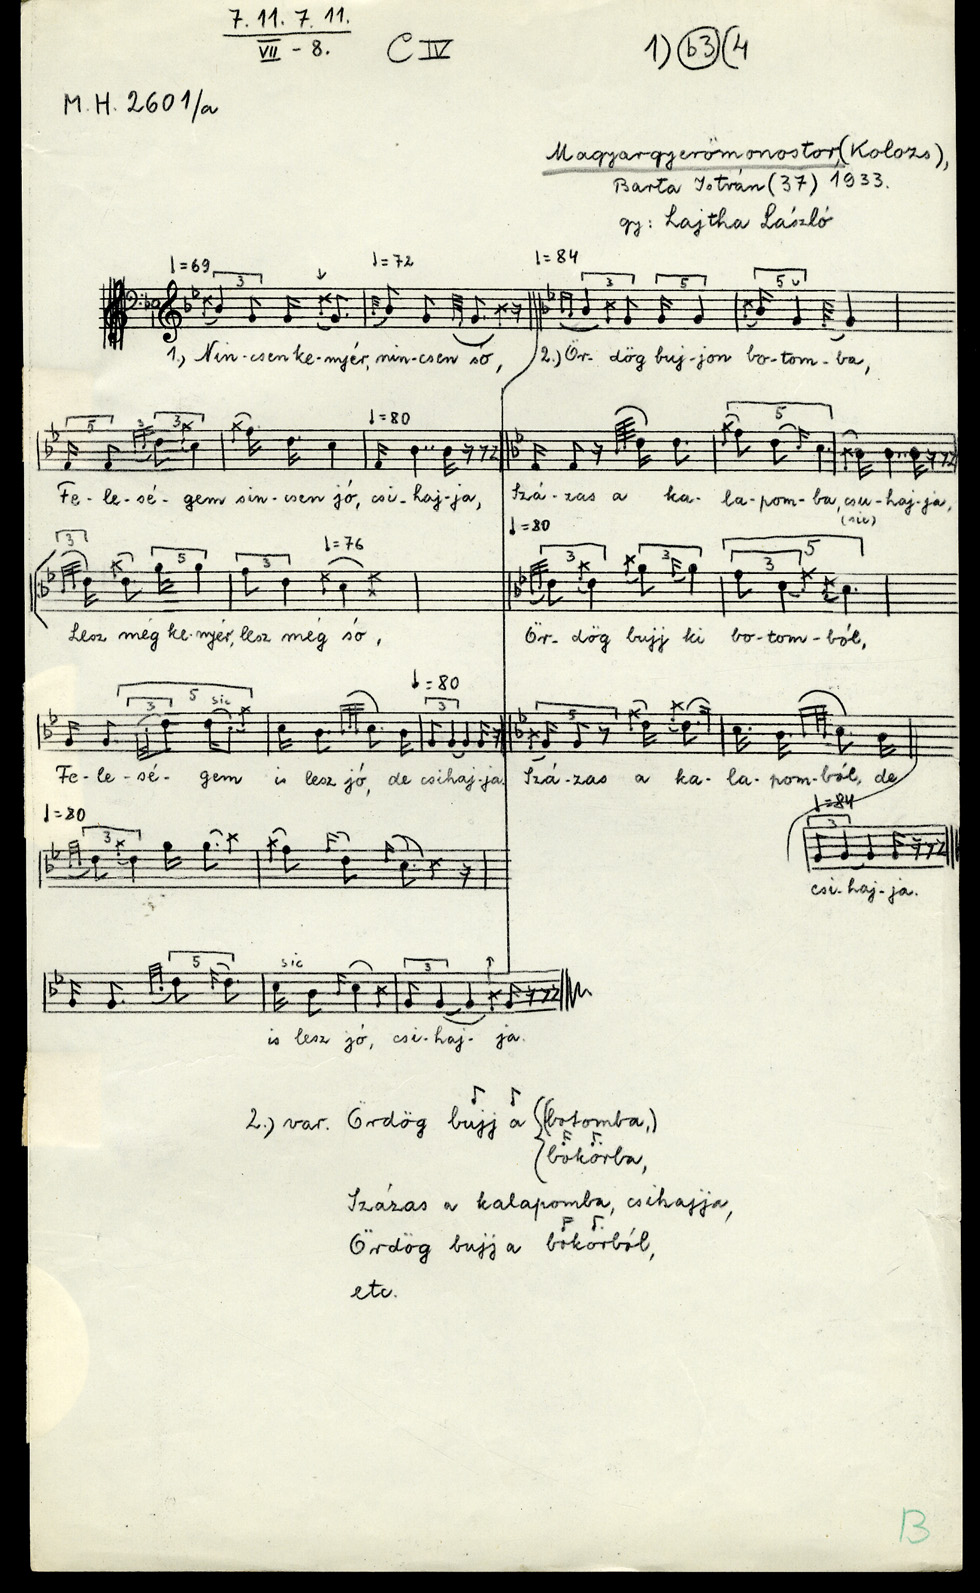 7. 11. 7. 11.
VII - 8.
C IV
1) b3 (4
M. H. 2601/a
Magyargyerőmonostor, (Kolozs),
Barta István (37) 1933.
gy: Lajtha László
♩=69 3 ♩=72 ♩=84 3 5 5
1., Nin-csen ke-nyér, nin-csen só, 2.) Ör- dög buj-jon bo-tom-ba,
5 3 3 ♩=80 5
Fe-le-sé-gem sin-csen jó, csi-haj-ja, Szá-zas a ka-la-pom-ba, csu-haj-ja,
(sic)
3 5 3 ♩=76 ♩=80 3 3 5 3
Lesz még ke-nyér, lesz még só, Ör-dög bujj ki bo-tom-ból,
5 3 sic ♩=80 3 5
Fe-le-sé-gem is lesz jó, de csihaj-ja. Szá-zas a ka-la-pom-ból, de
♩=80 3 ♩=84 3
csi-haj-ja.
5 sic 3
is lesz jó, csi-haj-ja.
2.) var. Ördög bujj a (botomba,)
bőkörba,
Százas a kalapomba, csihajja,
Ördög bujj a bőkörból,
etc.
B